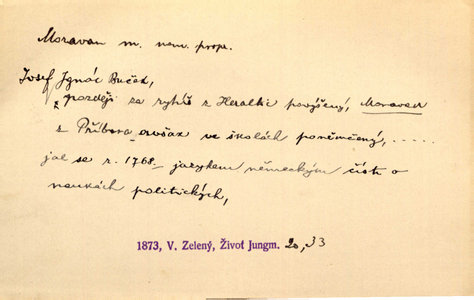 Moravan m. nom. propr.
Josef Ignác Buček,
později za rytíře z Heraltic povýšený, Moravan
z Příbora avšak ve školách poněmčený, .....
jal se r. 1768 jazykem německým čísti o
naukách politických,
1873, V. Zelený, Život Jungm. 20, 33